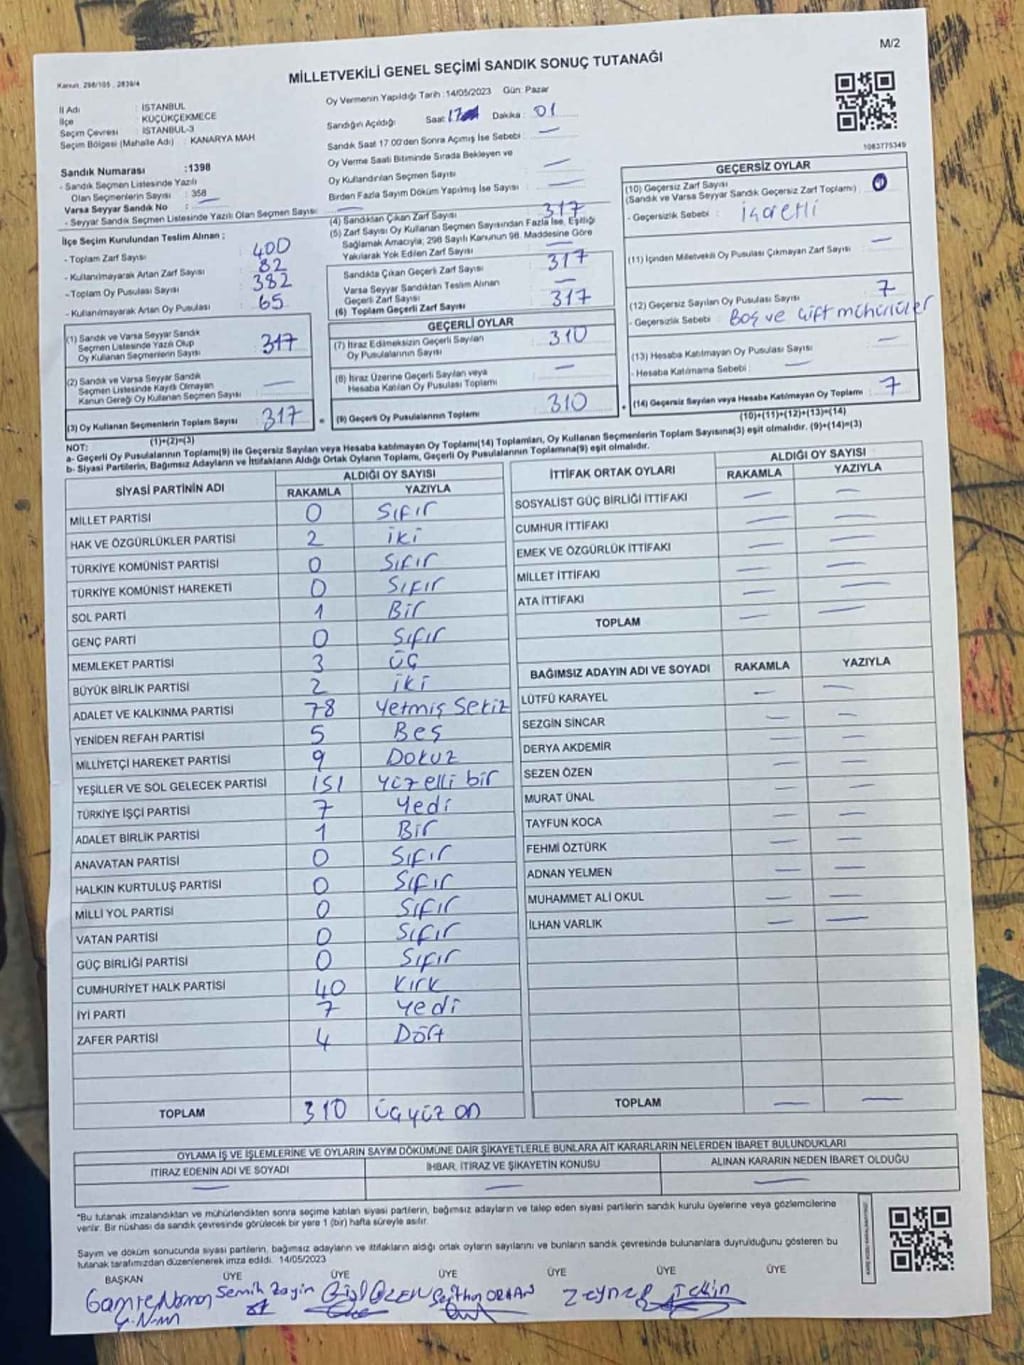 M/2
Kanun, 298/105 , 2839/4
MİLLETVEKİLİ GENEL SEÇİMİ SANDIK SONUÇ TUTANAĞI
İl Adı : İSTANBUL
İlçe : KÜÇÜKÇEKMECE
Seçim Çevresi : İSTANBUL-3
Seçim Bölgesi (Mahalle Adı) : KANARYA MAH
Sandık Numarası :1398
- Sandık Seçmen Listesinde Yazılı
Olan Seçmenlerin Sayısı : 358
Varsa Seyyar Sandık No : —
- Seyyar Sandık Seçmen Listesinde Yazılı Olan Seçmen Sayısı:
İlçe Seçim Kurulundan Teslim Alınan ;
- Toplam Zarf Sayısı : 400
- Kullanılmayarak Artan Zarf Sayısı : 82
- Toplam Oy Pusulası Sayısı : 382
- Kullanılmayarak Artan Oy Pusulası : 65
(1) Sandık ve Varsa Seyyar Sandık
Seçmen Listesinde Yazılı Olup
Oy Kullanan Seçmenlerin Sayısı : 317
(2) Sandık ve Varsa Seyyar Sandık
Seçmen Listesinde Kayıtlı Olmayan
Kanun Gereği Oy Kullanan Seçmen Sayısı : —
(3) Oy Kullanan Seçmenlerin Toplam Sayısı : 317
(1)+(2)=(3)
Oy Vermenin Yapıldığı Tarih :14/05/2023 Gün: Pazar
Sandığın Açıldığı Saat : 17 Dakika : 01
Sandık Saat 17.00'den Sonra Açımış İse Sebebi : —
Oy Verme Saati Bitiminde Sırada Bekleyen ve
Oy Kullandırılan Seçmen Sayısı : —
Birden Fazla Sayım Döküm Yapılmış İse Sayısı : —
(4) Sandıktan Çıkan Zarf Sayısı : 317
(5) Zarf Sayısı Oy Kullanan Seçmen Sayısından Fazla İse, Eşitliği
Sağlamak Amacıyla, 298 Sayılı Kanunun 98. Maddesine Göre
Yakılarak Yok Edilen Zarf Sayısı : —
Sandıkta Çıkan Geçerli Zarf Sayısı : 317
Varsa Seyyar Sandıktan Teslim Alınan
Geçerli Zarf Sayısı : —
(6) Toplam Geçerli Zarf Sayısı : 317
GEÇERLİ OYLAR
(7) İtiraz Edilmeksizin Geçerli Sayılan
Oy Pusulalarının Sayısı : 310
(8) İtiraz Üzerine Geçerli Sayılan veya
Hesaba Katılan Oy Pusulası Toplamı : —
(9) Geçerli Oy Pusulalarının Toplamı : 310
1083775349
GEÇERSİZ OYLAR
(10) Geçersiz Zarf Sayısı
(Sandık ve Varsa Seyyar Sandık Geçersiz Zarf Toplamı) :
- Geçersizlik Sebebi : İşaretli
(11) İçinden Milletvekili Oy Pusulası Çıkmayan Zarf Sayısı : —
(12) Geçersiz Sayılan Oy Pusulası Sayısı : 7
- Geçersizlik Sebebi : Boş ve çift mühürlüler
(13) Hesaba Katılmayan Oy Pusulası Sayısı : —
- Hesaba Katılmama Sebebi : —
(14) Geçersiz Sayılan veya Hesaba Katılmayan Oy Toplamı : 7
(10)+(11)+(12)+(13)=(14)
NOT:
a- Geçerli Oy Pusulalarının Toplamı(9) ile Geçersiz Sayılan veya Hesaba katılmayan Oy Toplamı(14) Toplamları, Oy Kullanan Seçmenlerin Toplam Sayısına(3) eşit olmalıdır. (9)+(14)=(3)
b- Siyasi Partilerin, Bağımsız Adayların ve İttifakların Aldığı Ortak Oyların Toplamı, Geçerli Oy Pusulalarının Toplamına(9) eşit olmalıdır.
SİYASİ PARTİNİN ADI ALDIĞI OY SAYISI
RAKAMLA YAZIYLA
MİLLET PARTİSİ 0 Sıfır
HAK VE ÖZGÜRLÜKLER PARTİSİ 2 iki
TÜRKİYE KOMÜNİST PARTİSİ 0 Sıfır
TÜRKİYE KOMÜNİST HAREKETİ 0 Sıfır
SOL PARTİ 1 Bir
GENÇ PARTİ 0 Sıfır
MEMLEKET PARTİSİ 3 üç
BÜYÜK BİRLİK PARTİSİ 2 iki
ADALET VE KALKINMA PARTİSİ 78 Yetmiş Sekiz
YENİDEN REFAH PARTİSİ 5 Beş
MİLLİYETÇİ HAREKET PARTİSİ 9 Dokuz
YEŞİLLER VE SOL GELECEK PARTİSİ 151 Yüzelli bir
TÜRKİYE İŞÇİ PARTİSİ 7 Yedi
ADALET BİRLİK PARTİSİ 1 Bir
ANAVATAN PARTİSİ 0 Sıfır
HALKIN KURTULUŞ PARTİSİ 0 Sıfır
MİLLİ YOL PARTİSİ 0 Sıfır
VATAN PARTİSİ 0 Sıfır
GÜÇ BİRLİĞİ PARTİSİ 0 Sıfır
CUMHURİYET HALK PARTİSİ 40 Kırk
İYİ PARTİ 7 Yedi
ZAFER PARTİSİ 4 Dört
TOPLAM 310 üçyüz on
İTTİFAK ORTAK OYLARI ALDIĞI OY SAYISI
RAKAMLA YAZIYLA
SOSYALİST GÜÇ BİRLİĞİ İTTİFAKI — —
CUMHUR İTTİFAKI — —
EMEK VE ÖZGÜRLÜK İTTİFAKI — —
MİLLET İTTİFAKI — —
ATA İTTİFAKI — —
TOPLAM — —
BAĞIMSIZ ADAYIN ADI VE SOYADI RAKAMLA YAZIYLA
LÜTFÜ KARAYEL — —
SEZGİN SİNCAR — —
DERYA AKDEMİR — —
SEZEN ÖZEN — —
MURAT ÜNAL — —
TAYFUN KOCA — —
FEHMİ ÖZTÜRK — —
ADNAN YELMEN — —
MUHAMMET ALİ OKUL — —
İLHAN VARLIK — —
TOPLAM — —
OYLAMA İŞ VE İŞLEMLERİNE VE OYLARIN SAYIM DÖKÜMÜNE DAİR ŞİKAYETLERLE BUNLARA AİT KARARLARIN NELERDEN İBARET BULUNDUKLARI
İTİRAZ EDENİN ADI VE SOYADI İHBAR, İTİRAZ VE ŞİKAYETİN KONUSU ALINAN KARARIN NEDEN İBARET OLDUĞU
— — —
*Bu tutanak imzalandıktan ve mühürlendikten sonra seçime katılan siyasi partilerin, bağımsız adayların ve talep eden siyasi partilerin sandık kurulu üyelerine veya gözlemcilerine
verilir. Bir nüshası da sandık çevresinde görülecek bir yere 1 (bir) hafta süreyle asılır.
Sayım ve döküm sonucunda siyasi partilerin, bağımsız adayların ve ittifakların aldığı ortak oyların sayılarını ve bunların sandık çevresinde bulunanlara duyrulduğunu gösteren bu
tutanak tarafımızdan düzenlenerek imza edildi. 14/05/2023
BAŞKAN ÜYE ÜYE ÜYE ÜYE ÜYE ÜYE
Semih Zayin ÖZEN ORHAN Zeynep Tekin